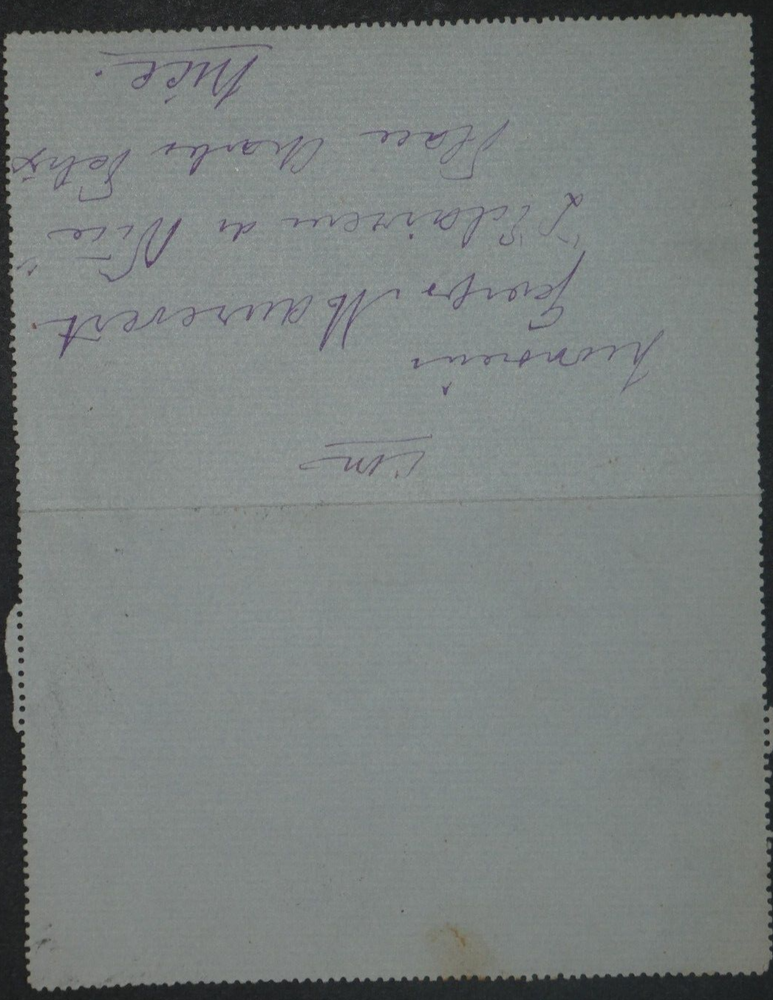 E/M
Monsieur
Georges Maurevert
"L'Eclaireur de Nice"
Place Charles Félix
Nice.